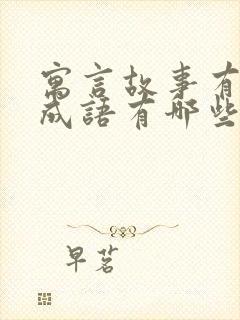 寓言故事有
成語有哪些
早茗